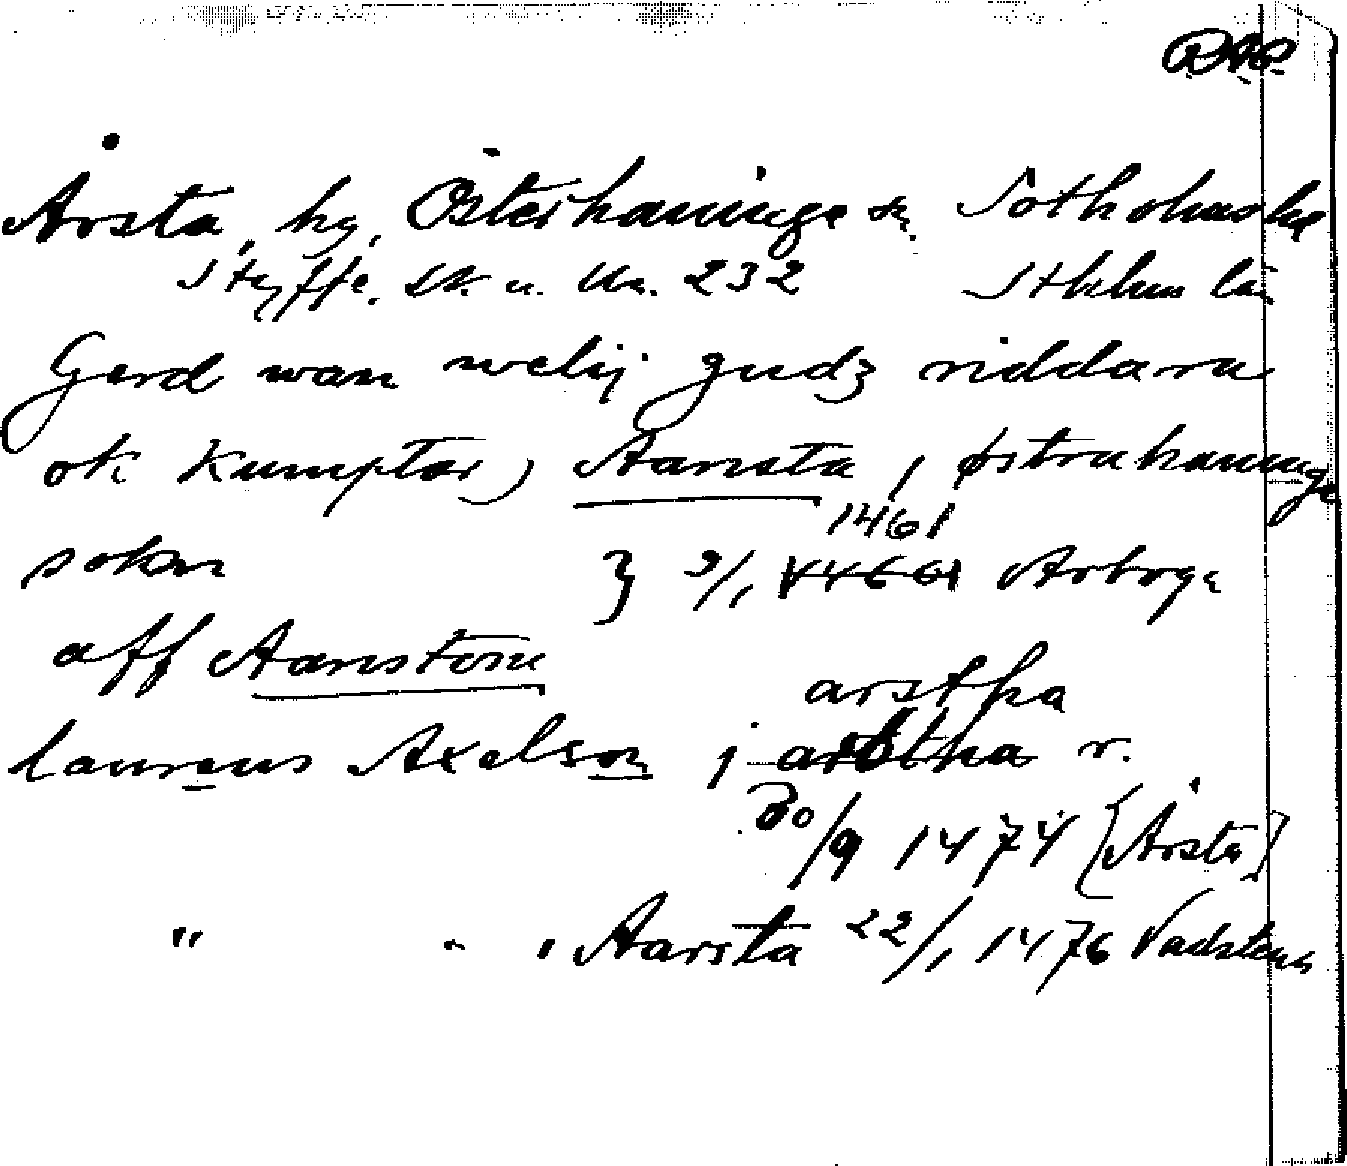 Årsta, hg, Österhaninge sn. Sotholms hd
Styffe, Sk. u. Un. 232 Sthlms län
Gerd wan welij gudz riddara
ok kumptor, Aarsta, østrahaninge
sokn } 9/1 1461 Arboga
aff Aarstom
arstha
laurens Axelson j r.
30/9 1474 [Årsta]
" " " Aarsta 22/1 1476 Vadstena